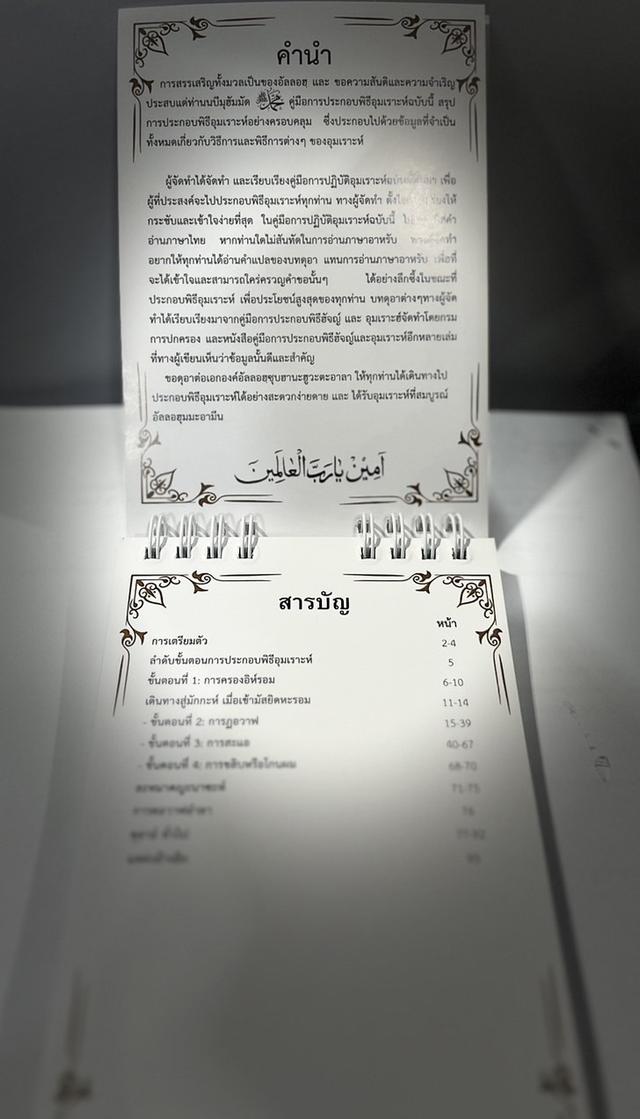 คำนำ
การสรรเสริญทั้งมวลเป็นของอัลลอฮฺ และ ขอความสันติและความจำเริญ
ประสบแด่ท่านนบีมุฮัมมัด ﷺ คู่มือการประกอบพิธีอุมเราะห์ฉบับนี้ สรุป
การประกอบพิธีอุมเราะห์อย่างครอบคลุม ซึ่งประกอบไปด้วยข้อมูลที่จำเป็น
ทั้งหมดเกี่ยวกับวิธีการและพิธีการต่างๆ ของอุมเราะห์
ผู้จัดทำได้จัดทำ และเรียบเรียงคู่มือการปฏิบัติอุมเราะห์ เพื่อ
ผู้ที่ประสงค์จะไปประกอบพิธีอุมเราะห์ทุกท่าน ทางผู้จัดทำ ให้
กระชับและเข้าใจง่ายที่สุด ในคู่มือการปฏิบัติอุมเราะห์ฉบับนี้
อ่านภาษาไทย หากท่านใดไม่สันทัดในการอ่านภาษาอาหรับ
อยากให้ทุกท่านได้อ่านคำแปลของบทดุอา แทนการอ่านภาษาอาหรับ เพื่อที่
จะได้เข้าใจและสามารถใคร่ครวญคำขอนั้นๆ ได้อย่างลึกซึ้งในขณะที่
ประกอบพิธีอุมเราะห์ เพื่อประโยชน์สูงสุดของทุกท่าน บทดุอาต่างๆทางผู้จัด
ทำได้เรียบเรียงมาจากคู่มือการประกอบพิธีฮัจญ์ และ อุมเราะฮ์จัดทำโดยกรม
การปกครอง และหนังสือคู่มือการประกอบพิธีฮัจญ์และอุมเราะห์อีกหลายเล่ม
ที่ทางผู้เขียนเห็นว่าข้อมูลนั้นดีและสำคัญ
ขอดุอาต่อเอกองค์อัลลอฮฺซุบฮานะฮูวะตะอาลา ให้ทุกท่านได้เดินทางไป
ประกอบพิธีอุมเราะห์ได้อย่างสะดวกง่ายดาย และ ได้รับอุมเราะห์ที่สมบูรณ์
อัลลอฮุมมะอามีน
آمِيْنْ يَارَبَّ الْعَالَمِيْن
สารบัญ
หน้า
การเตรียมตัว 2-4
ลำดับขั้นตอนการประกอบพิธีอุมเราะห์ 5
ขั้นตอนที่ 1: การครองอิห์รอม 6-10
เดินทางสู่มักกะห์ เมื่อเข้ามัสยิดหะรอม 11-14
- ขั้นตอนที่ 2: การฏอวาฟ 15-39
- ขั้นตอนที่ 3: การสะแอ 40-67
- ขั้นตอนที่ 4: การขลิบหรือโกนผม 68-70
71-75
76